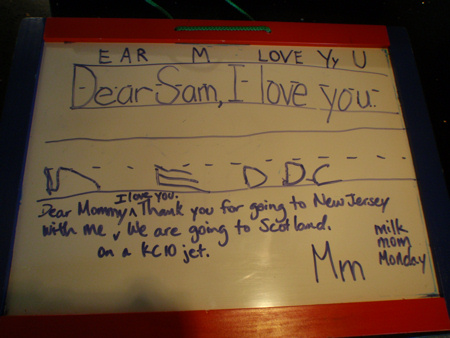 EAR M LOVE Yy U
Dear Sam, I love you.
D E D D C
I love you.
Dear Mommy ^ Thank you for going to New Jersey
with me. We are going to Scotland.
on a KC10 jet.
Mm
milk
mom
Monday